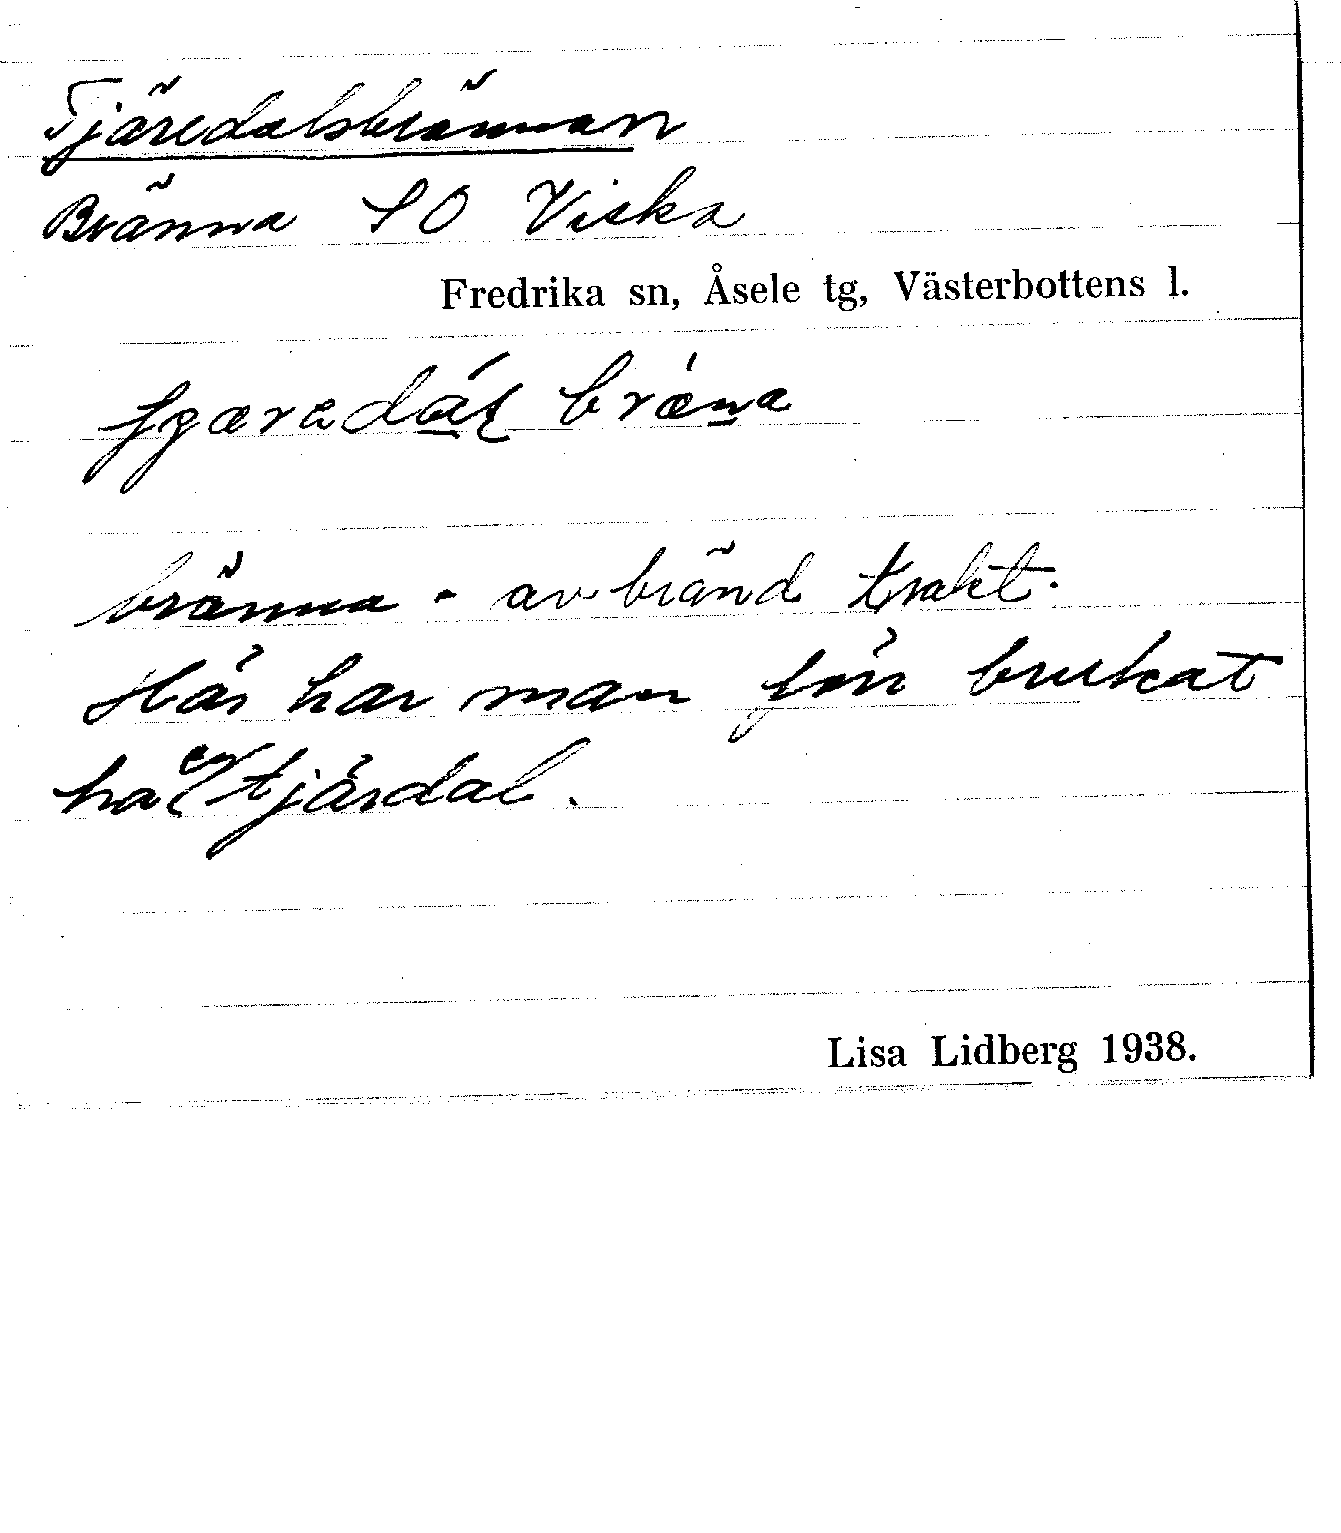 Tjäredalsbrännan
Bränna SO Viska
Fredrika sn, Åsele tg, Västerbottens l.
bränna - avbränd trakt.
Här har man förr brukat
ha en tjärdal.
Lisa Lidberg 1938.